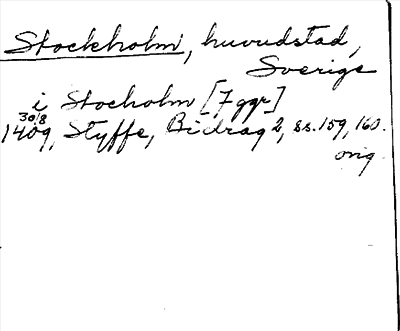 Stockholm, huvudstad,
Sverige
i Stocholm [7 ggr]
30/8
1409, Styffe, Bidrag 2, ss. 159, 160.
orig.